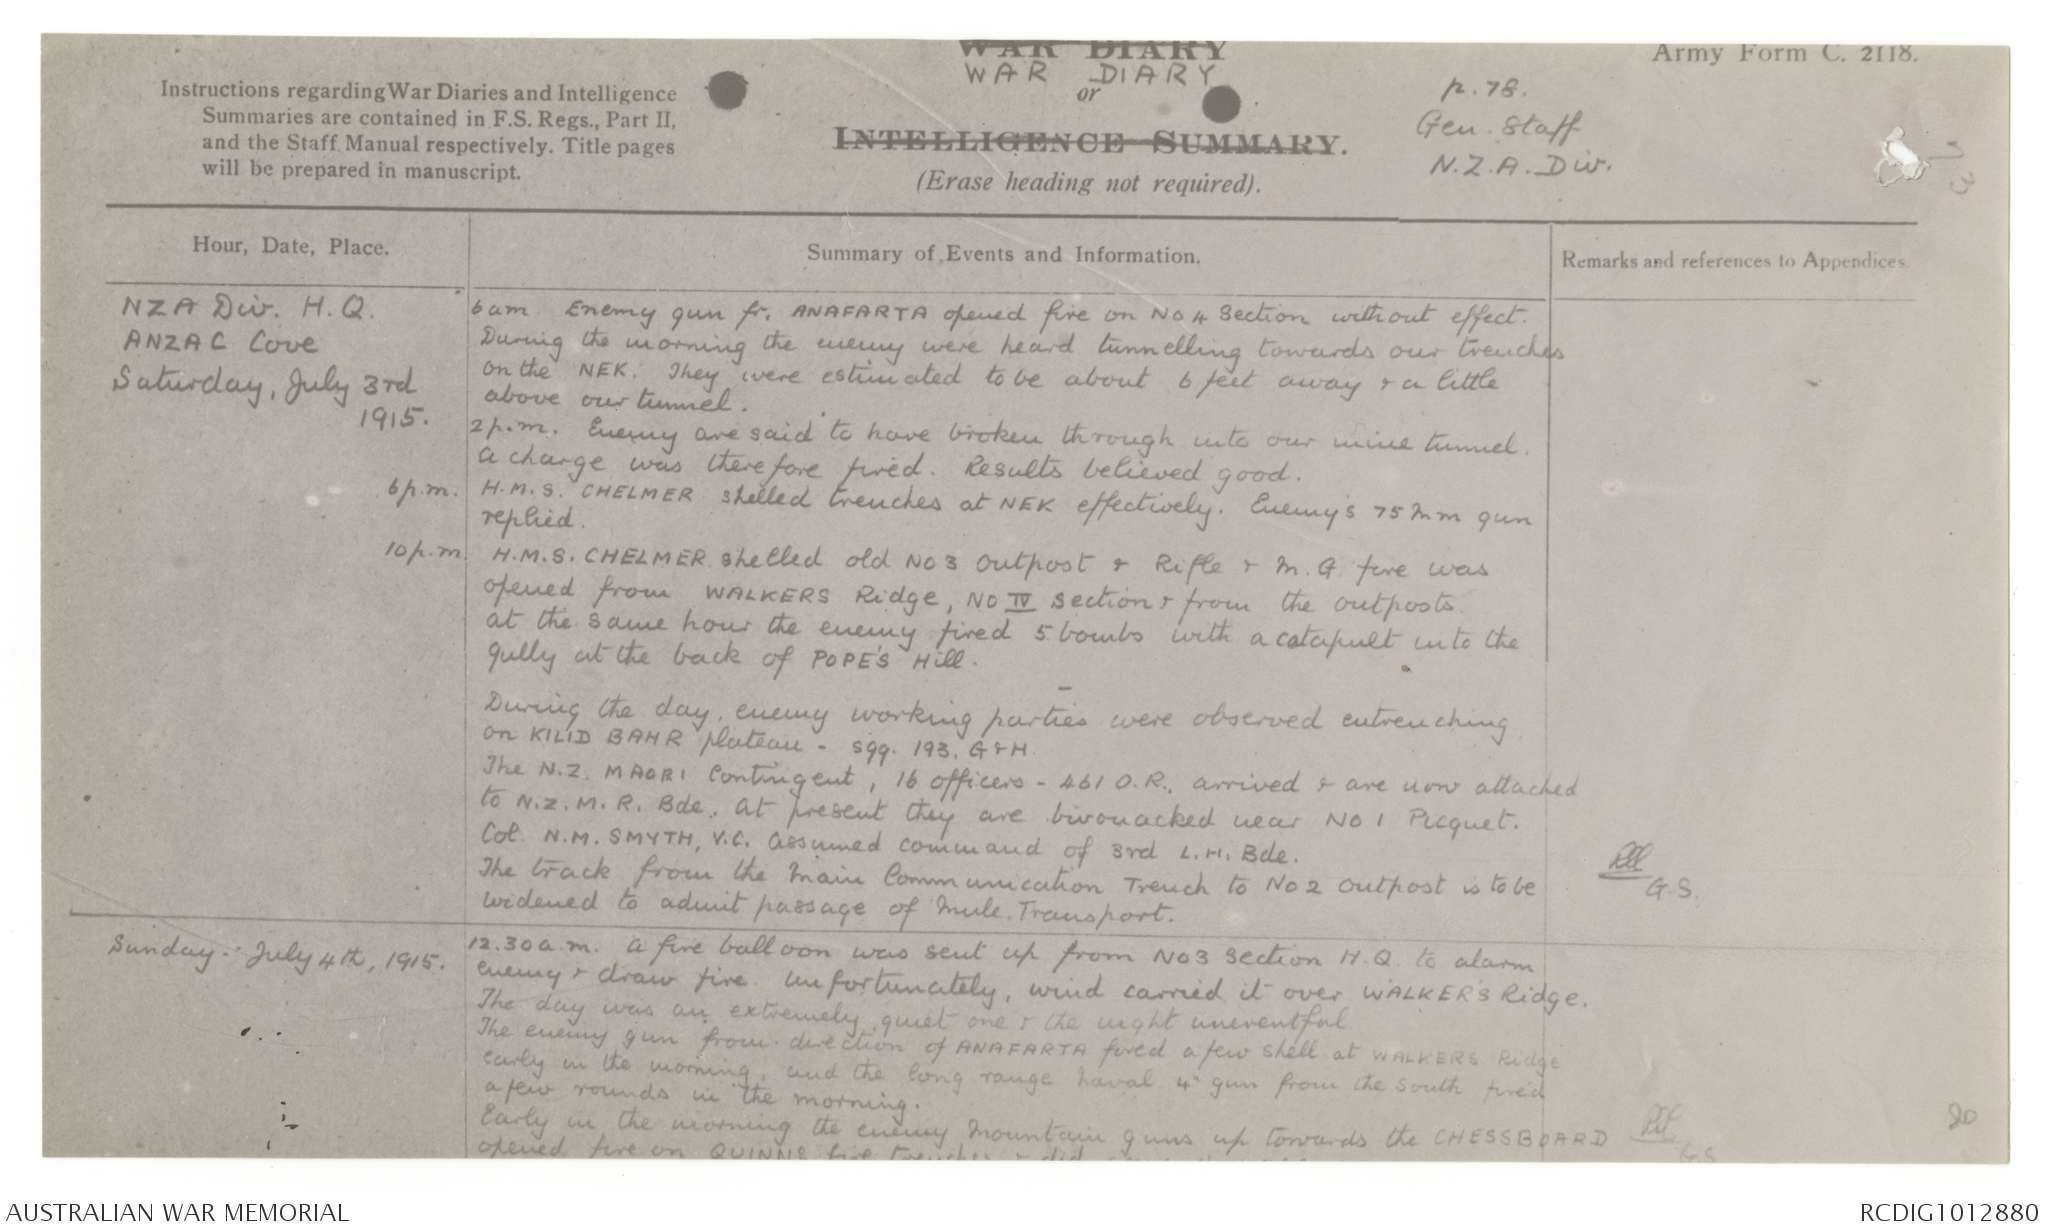 WAR DIARY
Army Form C. 2118.
WAR DIARY
or
INTELLIGENCE SUMMARY.
(Erase heading not required).
Instructions regarding War Diaries and Intelligence
Summaries are contained in F.S. Regs., Part II,
and the Staff Manual respectively. Title pages
will be prepared in manuscript.
p. 78.
Gen. Staff
N.Z.A. Div.
73
Hour, Date, Place.
Summary of Events and Information.
Remarks and references to Appendices.
NZA Div. H.Q.
ANZAC Cove
Saturday, July 3rd
1915.
6 am Enemy gun fr. ANAFARTA opened fire on No 4 Section without effect.
During the morning the enemy were heard tunnelling towards our trenches
on the NEK. They were estimated to be about 6 feet away & a little
above our tunnel.
2 p.m. Enemy are said to have broken through into our mine tunnel.
A charge was therefore fired. Results believed good.
6 p.m. H.M.S. CHELMER shelled trenches at NEK effectively. Enemy's 75 mm gun
replied.
10 p.m. H.M.S. CHELMER shelled old No 3 Outpost & Rifle & M.G. fire was
opened from WALKERS Ridge, No IV Section & from the outposts.
At the same hour the enemy fired 5 bombs with a catapult into the
gully at the back of POPE'S Hill.
During the day, enemy working parties were observed entrenching
on KILID BAHR plateau - sqq. 193. G & H.
The N.Z. MAORI Contingent, 16 officers - 461 O.R., arrived & are now attached
to N.Z.M.R. Bde. At present they are bivouacked near No 1 Picquet.
Col. N.M. SMYTH, V.C. assumed command of 3rd L.H. Bde.
The track from the Main Communication Trench to No 2 Outpost is to be
widened to admit passage of Mule Transport.
G.S.
Sunday - July 4th, 1915.
12.30 a.m. A fire balloon was sent up from No 3 Section H.Q. to alarm
enemy & draw fire. Unfortunately, wind carried it over WALKER'S Ridge.
The day was an extremely quiet one & the night uneventful.
The enemy gun from direction of ANAFARTA fired a few shell at WALKERS Ridge
early in the morning, and the long range naval 4" gun from the South fired
a few rounds in the morning.
Early in the morning the enemy Mountain guns up towards the CHESSBOARD
opened fire on QUINNS fire trenches & did
G.S.
20
AUSTRALIAN WAR MEMORIAL
RCDIG1012880